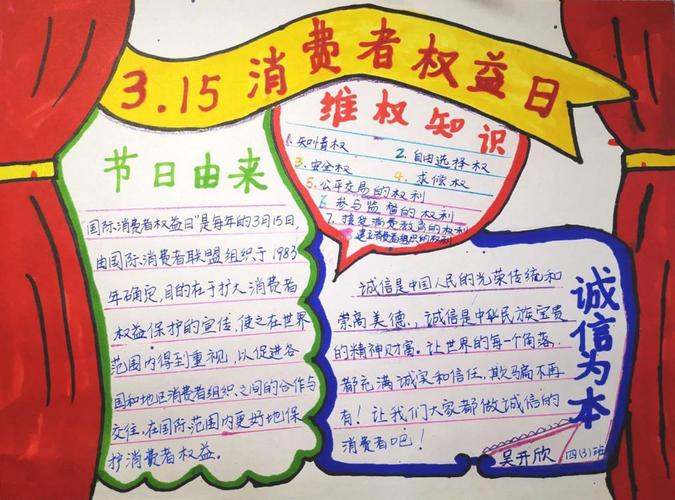 3.15消费者权益日
节日由来
"国际消费者权益日"是每年的3月15日,
由国际消费者联盟组织于1983
年确定,目的在于扩大消费者
权益保护的宣传,使之在世界
范围内得到重视,以促进各
国和地区消费者组织之间的合作与
交往,在国际范围内更好地保
护消费者权益。
维权知识
1.知情权 2.自由选择权
3.安全权 4.求偿权
5.公平交易的权利
6.参与监督的权利
7.接受消费教育的权利
建立消费者组织的权利
诚信为本
诚信是中国人民的光荣传统和
崇高美德.,诚信是中华民族宝贵
的精神财富。让世界的每一个角落
都充满诚实和信任,欺骗不再
有!让我们大家都做诚信的
消费者吧!
吴开欣 四(3)班